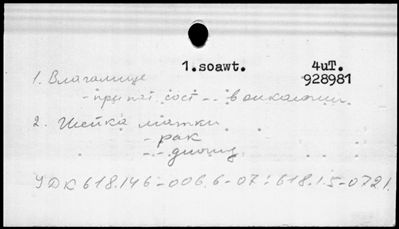 1.soawt. 4uT.
928981
1. Влагалище
- при пат. сост. -
2. Шейка матки
- рак
УДК 618.146-006.6-07:618.15-072.1